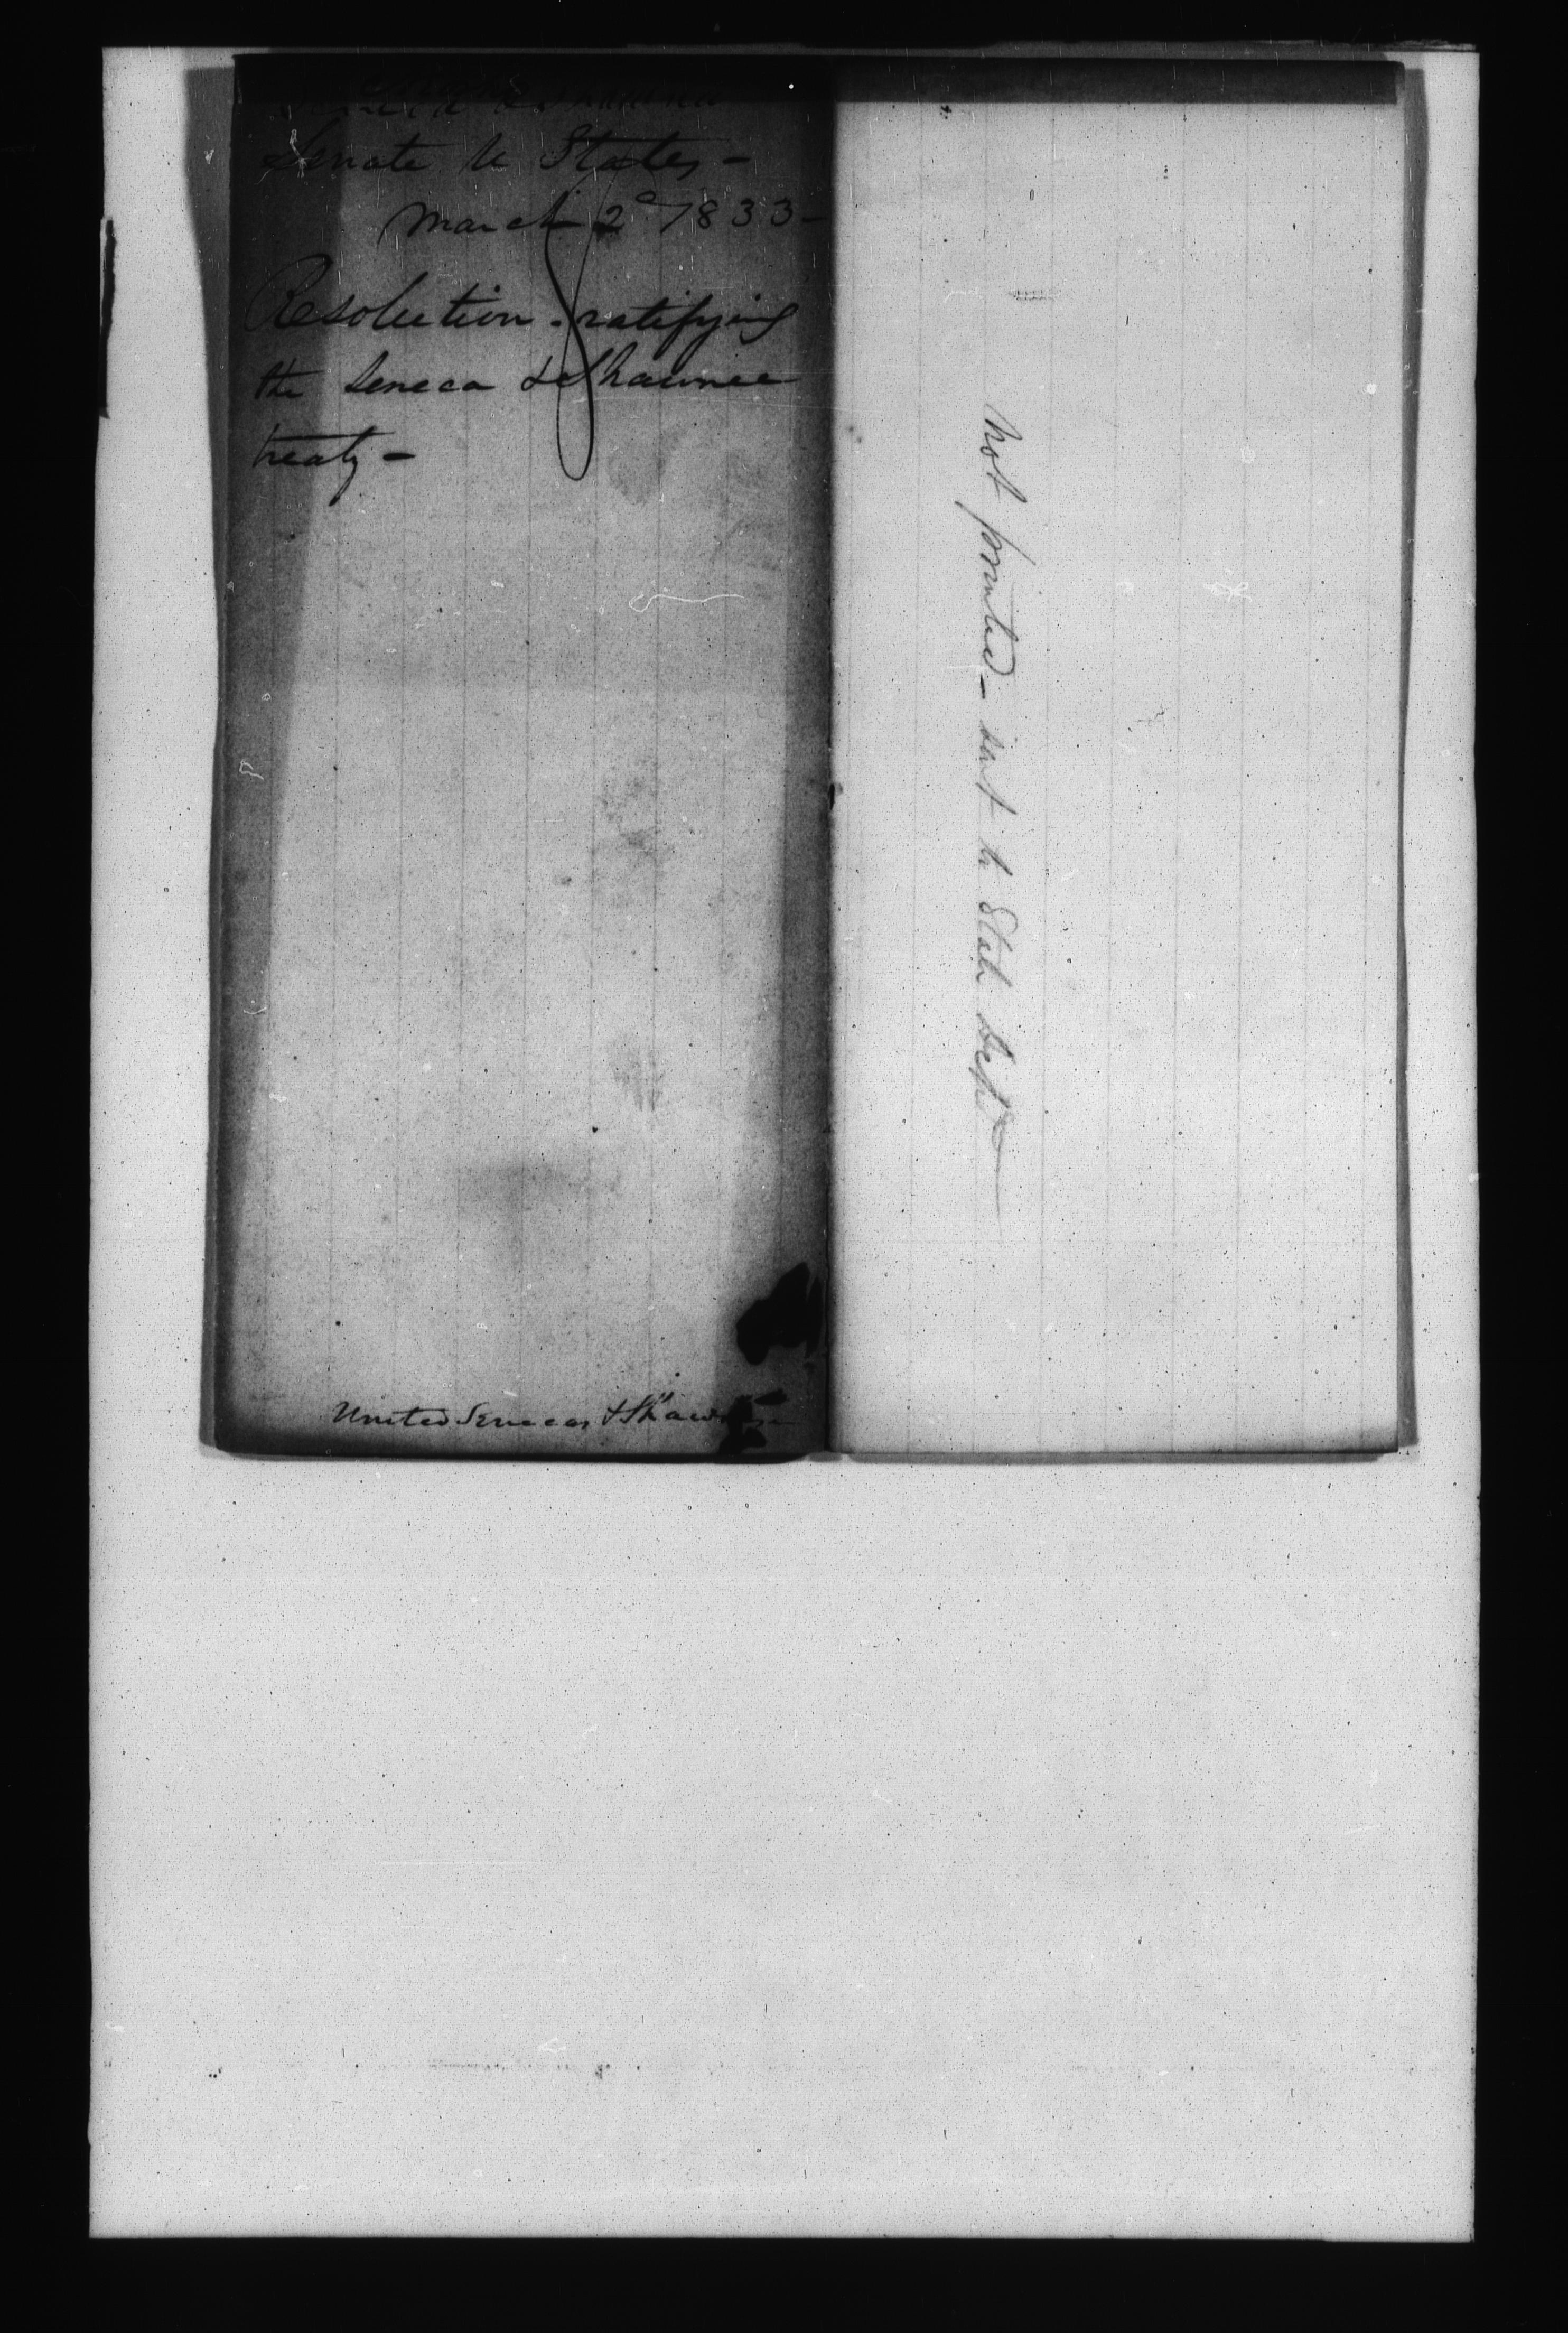 Senate U States -
March 2d 1833 -
Resolution. ratifying
the Seneca & Shawnee
treaty -
United Senecas &
Not printed - sent to State Dept